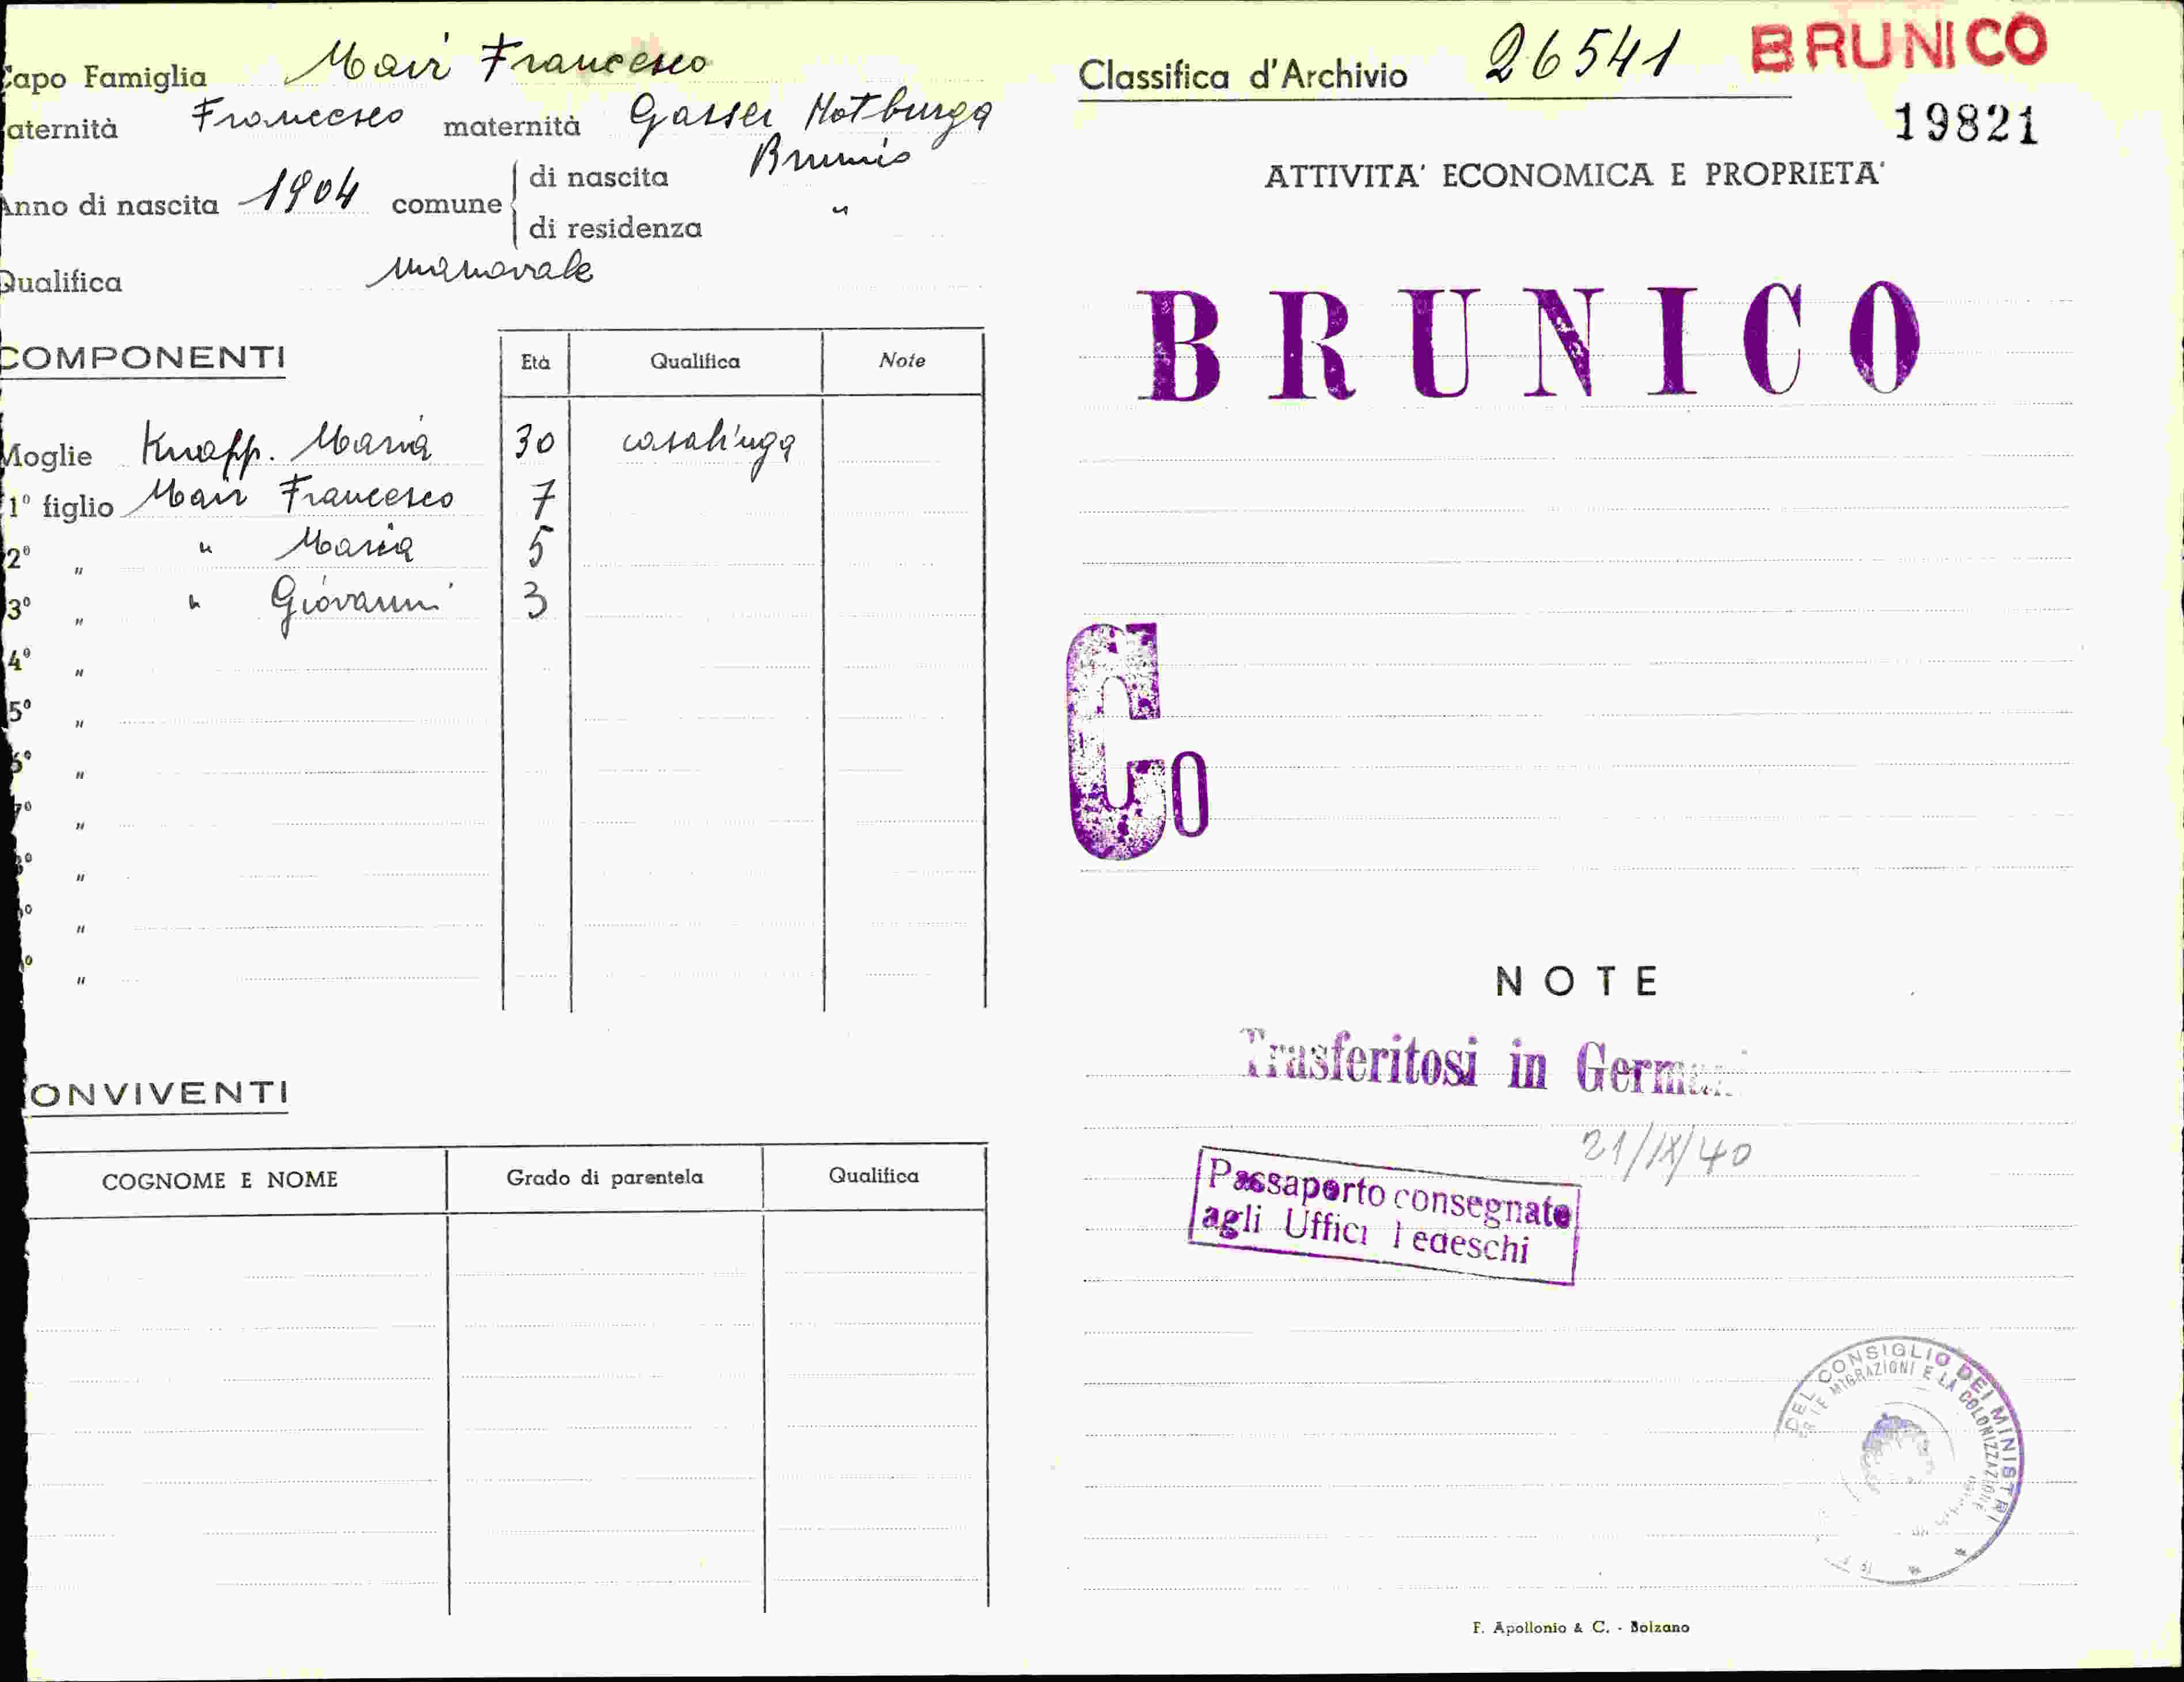 Capo Famiglia Mair Francesco
aternità Francesco maternità Gasser Notburga
Anno di nascita 1904 comune di nascita Brunico
di residenza "
Qualifica manovale
COMPONENTI Età Qualifica Note
Moglie Knapp. Maria 30 casalinga
1° figlio Mair Francesco 7
2° " " Maria 5
3° " " Giovanni 3
4° "
5° "
6° "
7° "
8° "
° "
° "
ONVIVENTI
COGNOME E NOME Grado di parentela Qualifica
Classifica d'Archivio 26541 BRUNICO
19821
ATTIVITA' ECONOMICA E PROPRIETA'
BRUNICO
Co
NOTE
Trasferitosi in German
21/IX/40
Passaporto consegnato
agli Uffici Tedeschi
DEL CONSIGLIO DEI MINISTRI
MIGRAZIONI E LA COLONIZZAZIONE
F. Apollonio & C. - Bolzano